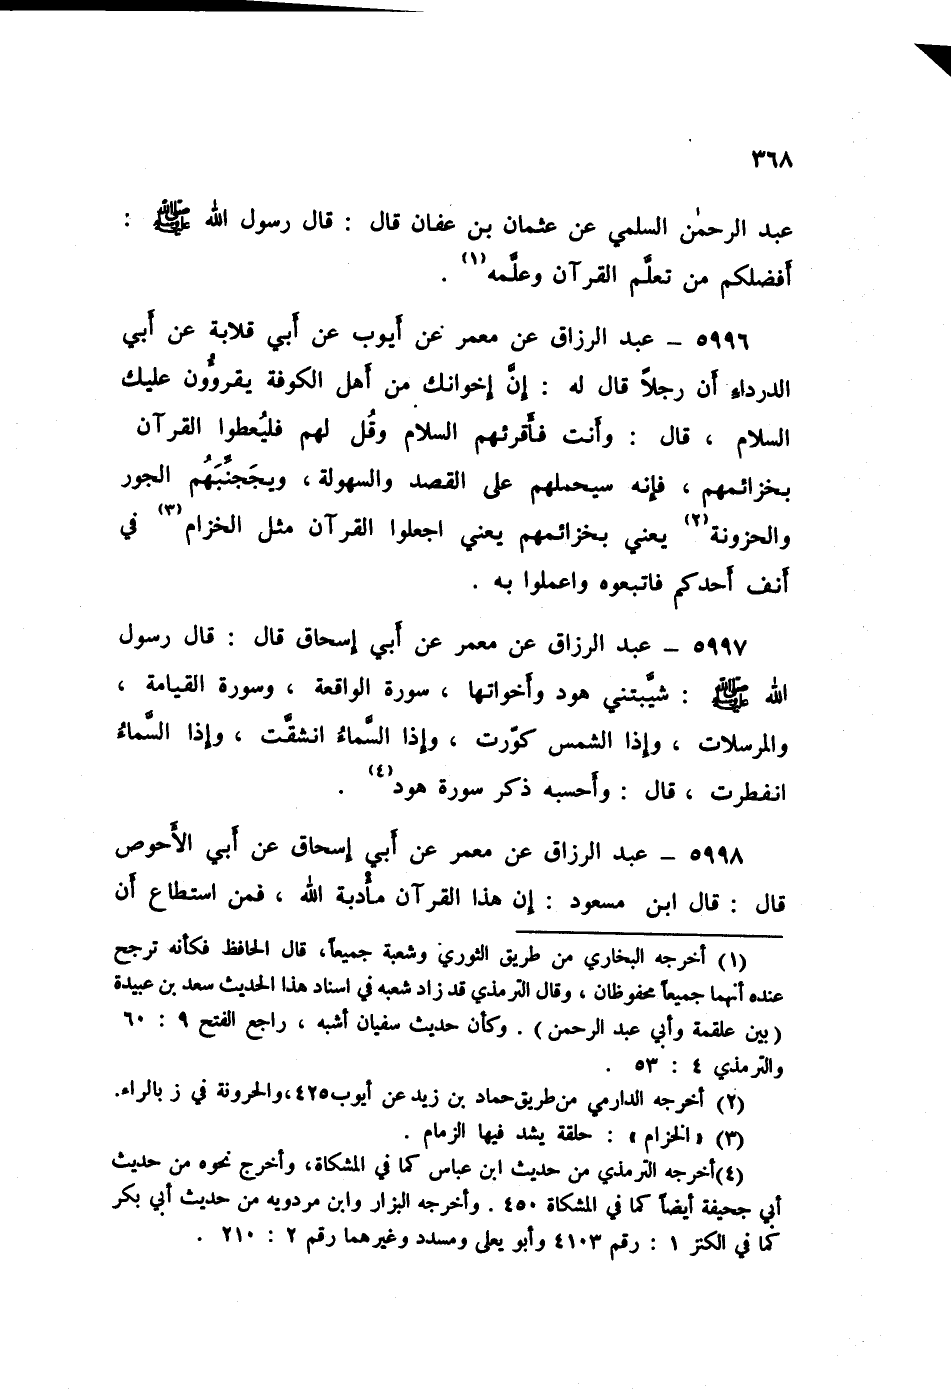 ٣٦٨
عبد الرحمٰن السلمي عن عثمان بن عفان قال : قال رسول الله ﷺ :
أفضلكم من تعلَّم القرآن وعلَّمه(١) .
٥٩٩٦ – عبد الرزاق عن معمر عن أيوب عن أبي قلابة عن أبي
الدرداء أن رجلاً قال له : إنَّ إخوانك من أهل الكوفة يقرؤُون عليك
السلام ، قال : وأنت فأقرئهم السلام وقُل لهم فليُعطوا القرآن
بخزائمهم ، فإنه سيحملهم على القصد والسهولة ، ويجَجنَّبَهُم الجور
والحزونة(٢) يعني بخزائمهم يعني اجعلوا القرآن مثل الخزام(٣) في
أنف أحدكم فاتبعوه واعملوا به .
٥٩٩٧ – عبد الرزاق عن معمر عن أبي إسحاق قال : قال رسول
الله ﷺ : شيَّبتني هود وأخواتها ، سورة الواقعة ، وسورة القيامة ،
والمرسلات ، وإذا الشمس كوّرت ، وإذا السَّماءُ انشقَّت ، وإذا السَّماءُ
انفطرت ، قال : وأحسبه ذكر سورة هود(٤) .
٥٩٩٨ – عبد الرزاق عن معمر عن أبي إسحاق عن أبي الأحوص
قال : قال ابن مسعود : إن هذا القرآن مأدبة الله ، فمن استطاع أن
(١) أخرجه البخاري من طريق الثوري وشعبة جميعاً، قال الحافظ فكأنه ترجح
عنده أنهما جميعاً محفوظان ، وقال الترمذي قد زاد شعبه في اسناد هذا الحديث سعد بن عبيدة
(بين علقمة وأبي عبد الرحمن) . وكأن حديث سفيان أشبه ، راجع الفتح ٩ : ٦٠
والترمذي ٤ : ٥٣ .
(٢) أخرجه الدارمي من طريق حماد بن زيد عن أيوب ٤٢٥، والحرونة في ز بالراء.
(٣) «الخزام» : حلقة يشد فيها الزمام .
(٤) أخرجه الترمذي من حديث ابن عباس كما في المشكاة، وأخرج نحوه من حديث
أبي جحيفة أيضاً كما في المشكاة ٤٥٠ . وأخرجه البزار وابن مردويه من حديث أبي بكر
كما في الكنز ١ : رقم ٤١٠٣ وأبو يعلى ومسدد وغيرهما رقم ٢ : ٢١٠ .